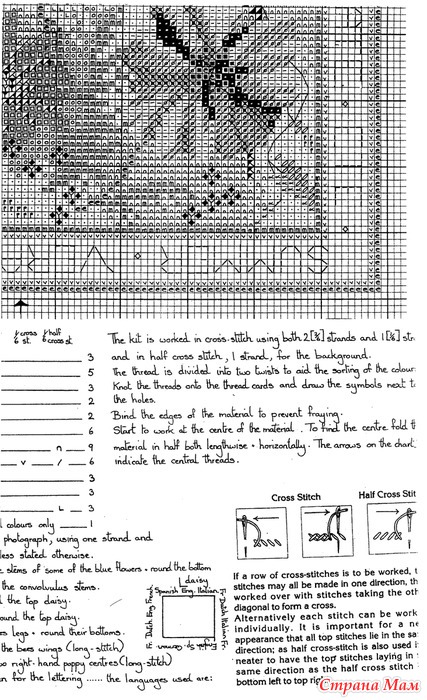 ½ cross
6 st.
½ half
6 cross st.
3
5
3
2
2
6
∩ 9
v / 6
3
3
L 3
l colours only 1
photograph, using one strand and
less stated otherwise.
stems of some of the blue flowers + round the bottom
the convolvulus stems.
the top daisy.
round the top daisy.
legs + round their bottoms.
the bees wings (long-stitch)
right-hand poppy centres (long-stitch)
for the lettering ...... the languages used are:
The kit is worked in cross-stitch using both 2 strands and 1
and in half cross stitch, 1 strand, for the background.
The thread is divided into two twists to aid the sorting of the colour
Knot the threads onto the thread cards and draw the symbols next t
the holes.
Bind the edges of the material to prevent fraying.
Start to work at the centre of the material. To find the centre fold t
material in half both lengthwise + horizontally. The arrows on the chart
indicate the central threads.
daisy
Spanish Eng. Italian
Fr. Dutch Eng. French
Cross Stitch
Half Cross Stit
If a row of cross-stitches is to be worked, t
stitches may all be made in one direction, th
worked over with stitches taking the oth
diagonal to form a cross.
Alternatively each stitch can be work
individually. It is important for a ne
appearance that all top stitches lie in the sa
direction; as half cross-stitch is also used i
neater to have the top stitches laying in
same direction as the half cross stitch
bottom left to top rig
Страна Мам